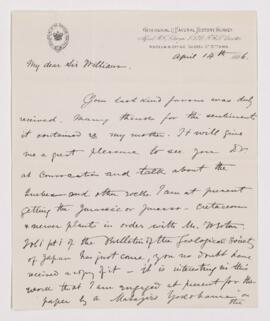 GEOLOGICAL & NATURAL HISTORY SURVEY
MUSEUM & OFFICE SUSSEX ST OTTAWA
April 14th 1886.
My dear Sir William.
Your last kind favour was duly
received. Many thanks for the sentiment
it contained my mother. It will give
me a great pleasure to see you &c
at Convocation and talk about the
and other rocks. I am at present
getting the Jurassic or Jurasso-Cretaceous
& newer plants in order with Mr Weston
Vol 1 pt 1 of the Bulletin of the Geological Society
of Japan has just come, you no doubt have
received a copy of it – it is interesting in this
work that I am engaged at present for the
paper by a Matajiro Yokohama on the